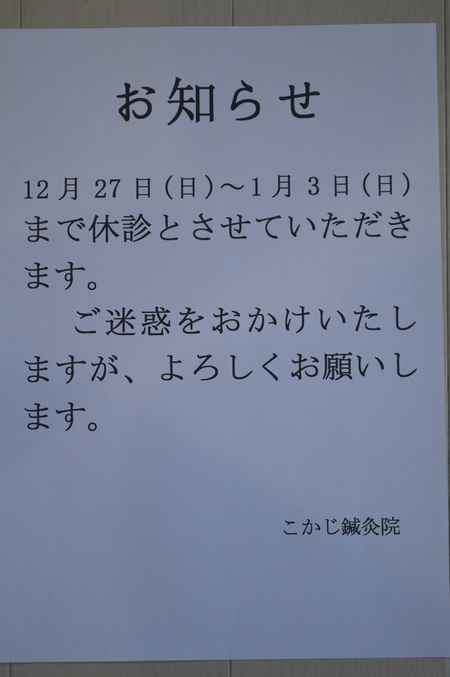 お知らせ
12月27日(日)～1月3日(日)
まで休診とさせていただき
ます。
ご迷惑をおかけいたし
ますが、よろしくお願いし
ます。
こかじ鍼灸院